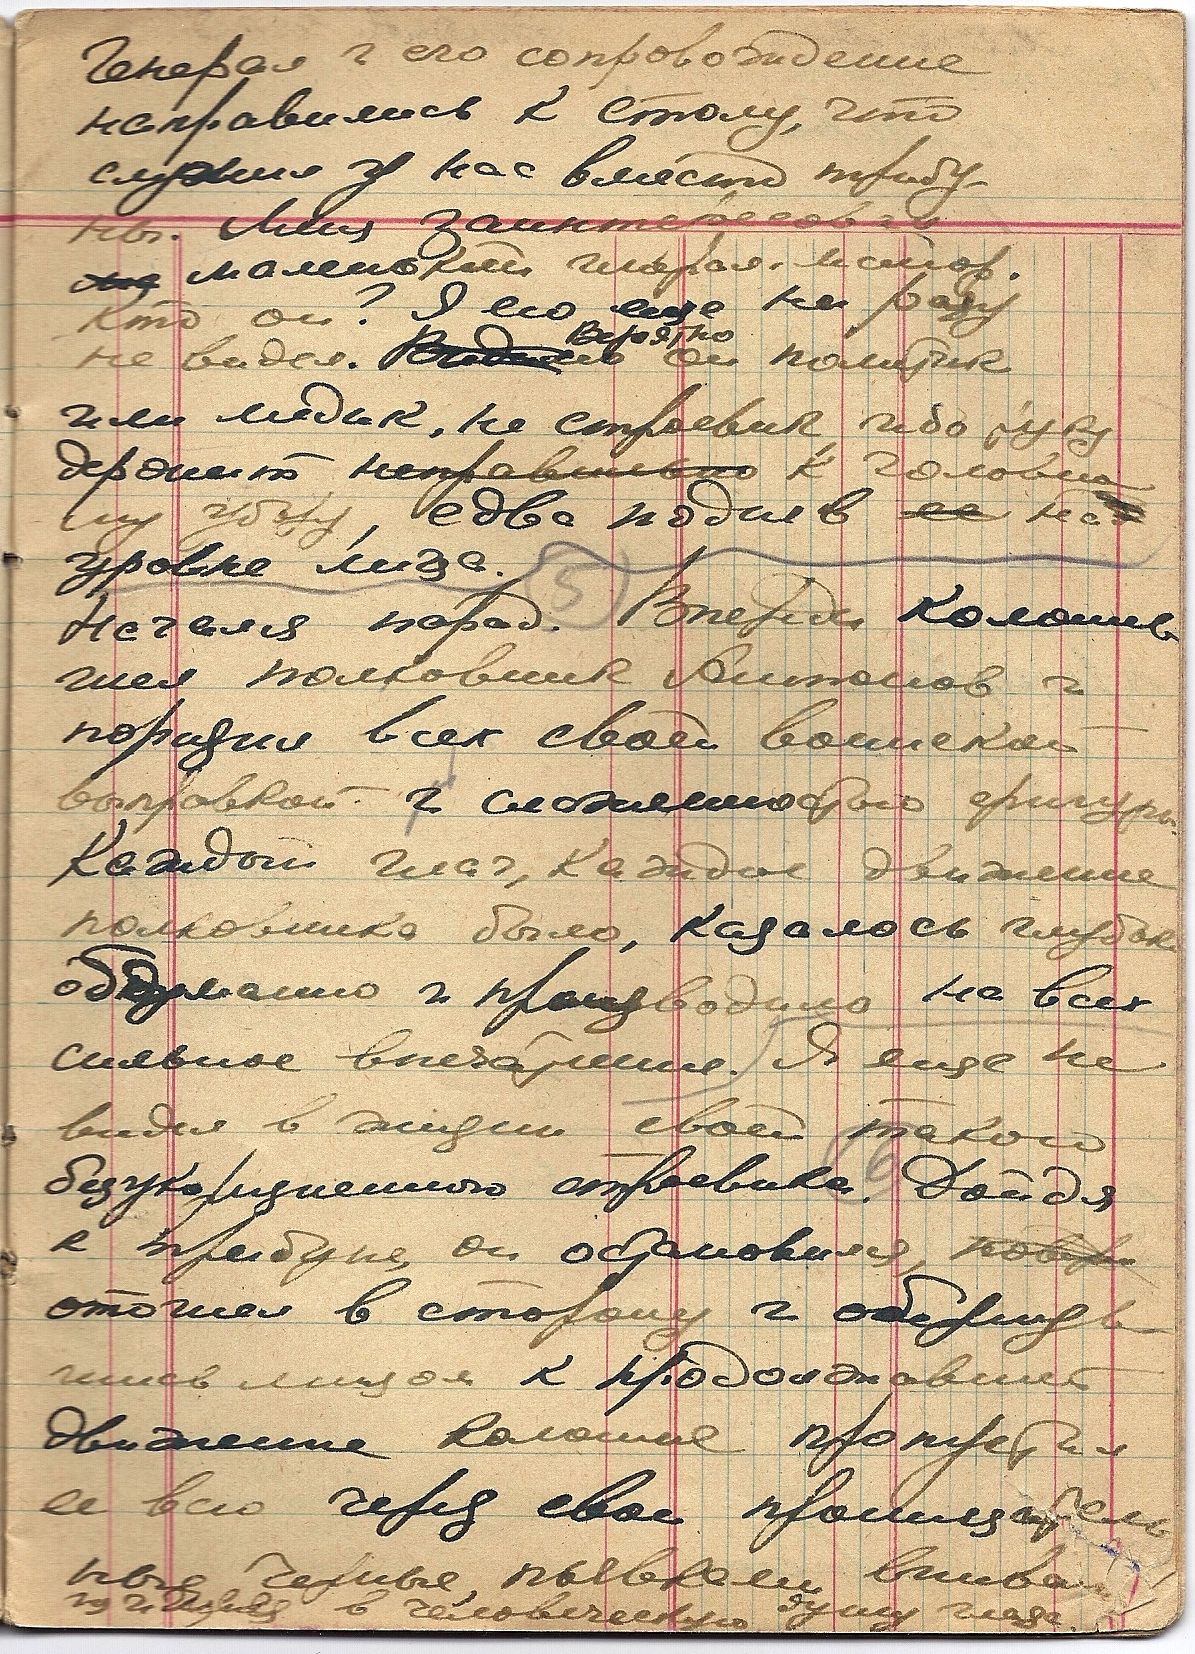 Генерал и его сопровождение
направились к столу, что
служил у нас вместо трибу-
ны. Меня заинтересовал
маленький генерал-майор.
Кто он? Я его еще ни разу
не видел. Вероятно он политик
или медик, не строевик, ибо руку
держит неправильно к головно
му убору, едва подняв ее на
уровне лица.
5
Начался парад. Впереди колонны
шел полковник Антонов и
поразил всех своей воинской
выправкой и сложенностью фигуры.
Каждый шаг, каждое движение
полковника было, казалось глубоко
обдуманно и производило на всех
сильное впечатление. Я еще не
видел в жизни своей такого
6
безукоризненного строевика. Дойдя
к трибуне, он остановился,
отошел в сторону и обернув
шись лицом к продолжавшей
движение колонне пропустил
ее всю через свои проницатель
ные черные, пиявками впива
в человеческую душу глаза.